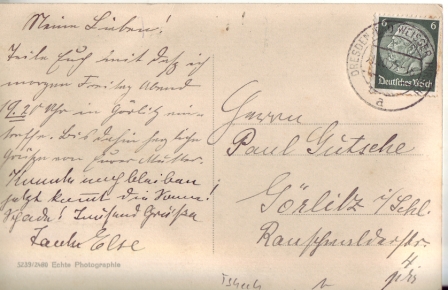 Meine Lieben!
Teile Euch mit daß ich
morgen Freitag Abend
Uhr in Görlitz ein-
treffe. Bis dahin herzliche
Grüße von Eurer Mutter.
noch bleiben
jetzt kommt die Sonne!
Schade! Tausend Grüße
Tante Else
Herrn
Paul Gutsche
Görlitz i/Schl.
Rauschwalderstr.
4
DRESDEN
a
6
Deutsches Reich
Echte Photographie